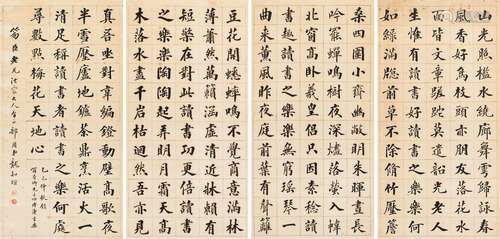 山光照檻水繞廊舞雩歸詠春
風香好鳥枝頭亦朋友落花水
面皆文章蹉跎莫遣韶光老人
生惟有讀書好讀書之樂樂何
如綠滿牕前草不除脩竹壓簷
桑四圍小齋幽敞明朱曦晝長
吟罷蟬鳴樹夜深燼落螢入幃
北窗高臥羲皇侶只因素稔讀
書趣讀書之樂樂無窮瑤琴一
曲來薰風昨夜庭前葉有聲籬
豆花開蟋蟀鳴不覺商意滿林
薄蕭然萬籟涵虛清近牀賴有
短檠在對此讀書功更倍讀書
之樂樂陶陶起弄明月霜天高
木落水盡千崖枯迥然吾亦見
真吾坐對韋編燈動壁高歌夜
半雪壓廬地鑪茶鼎烹活火一
清足稱讀書者讀書之樂何處
尋數點梅花天地心
臣老兄法家大人